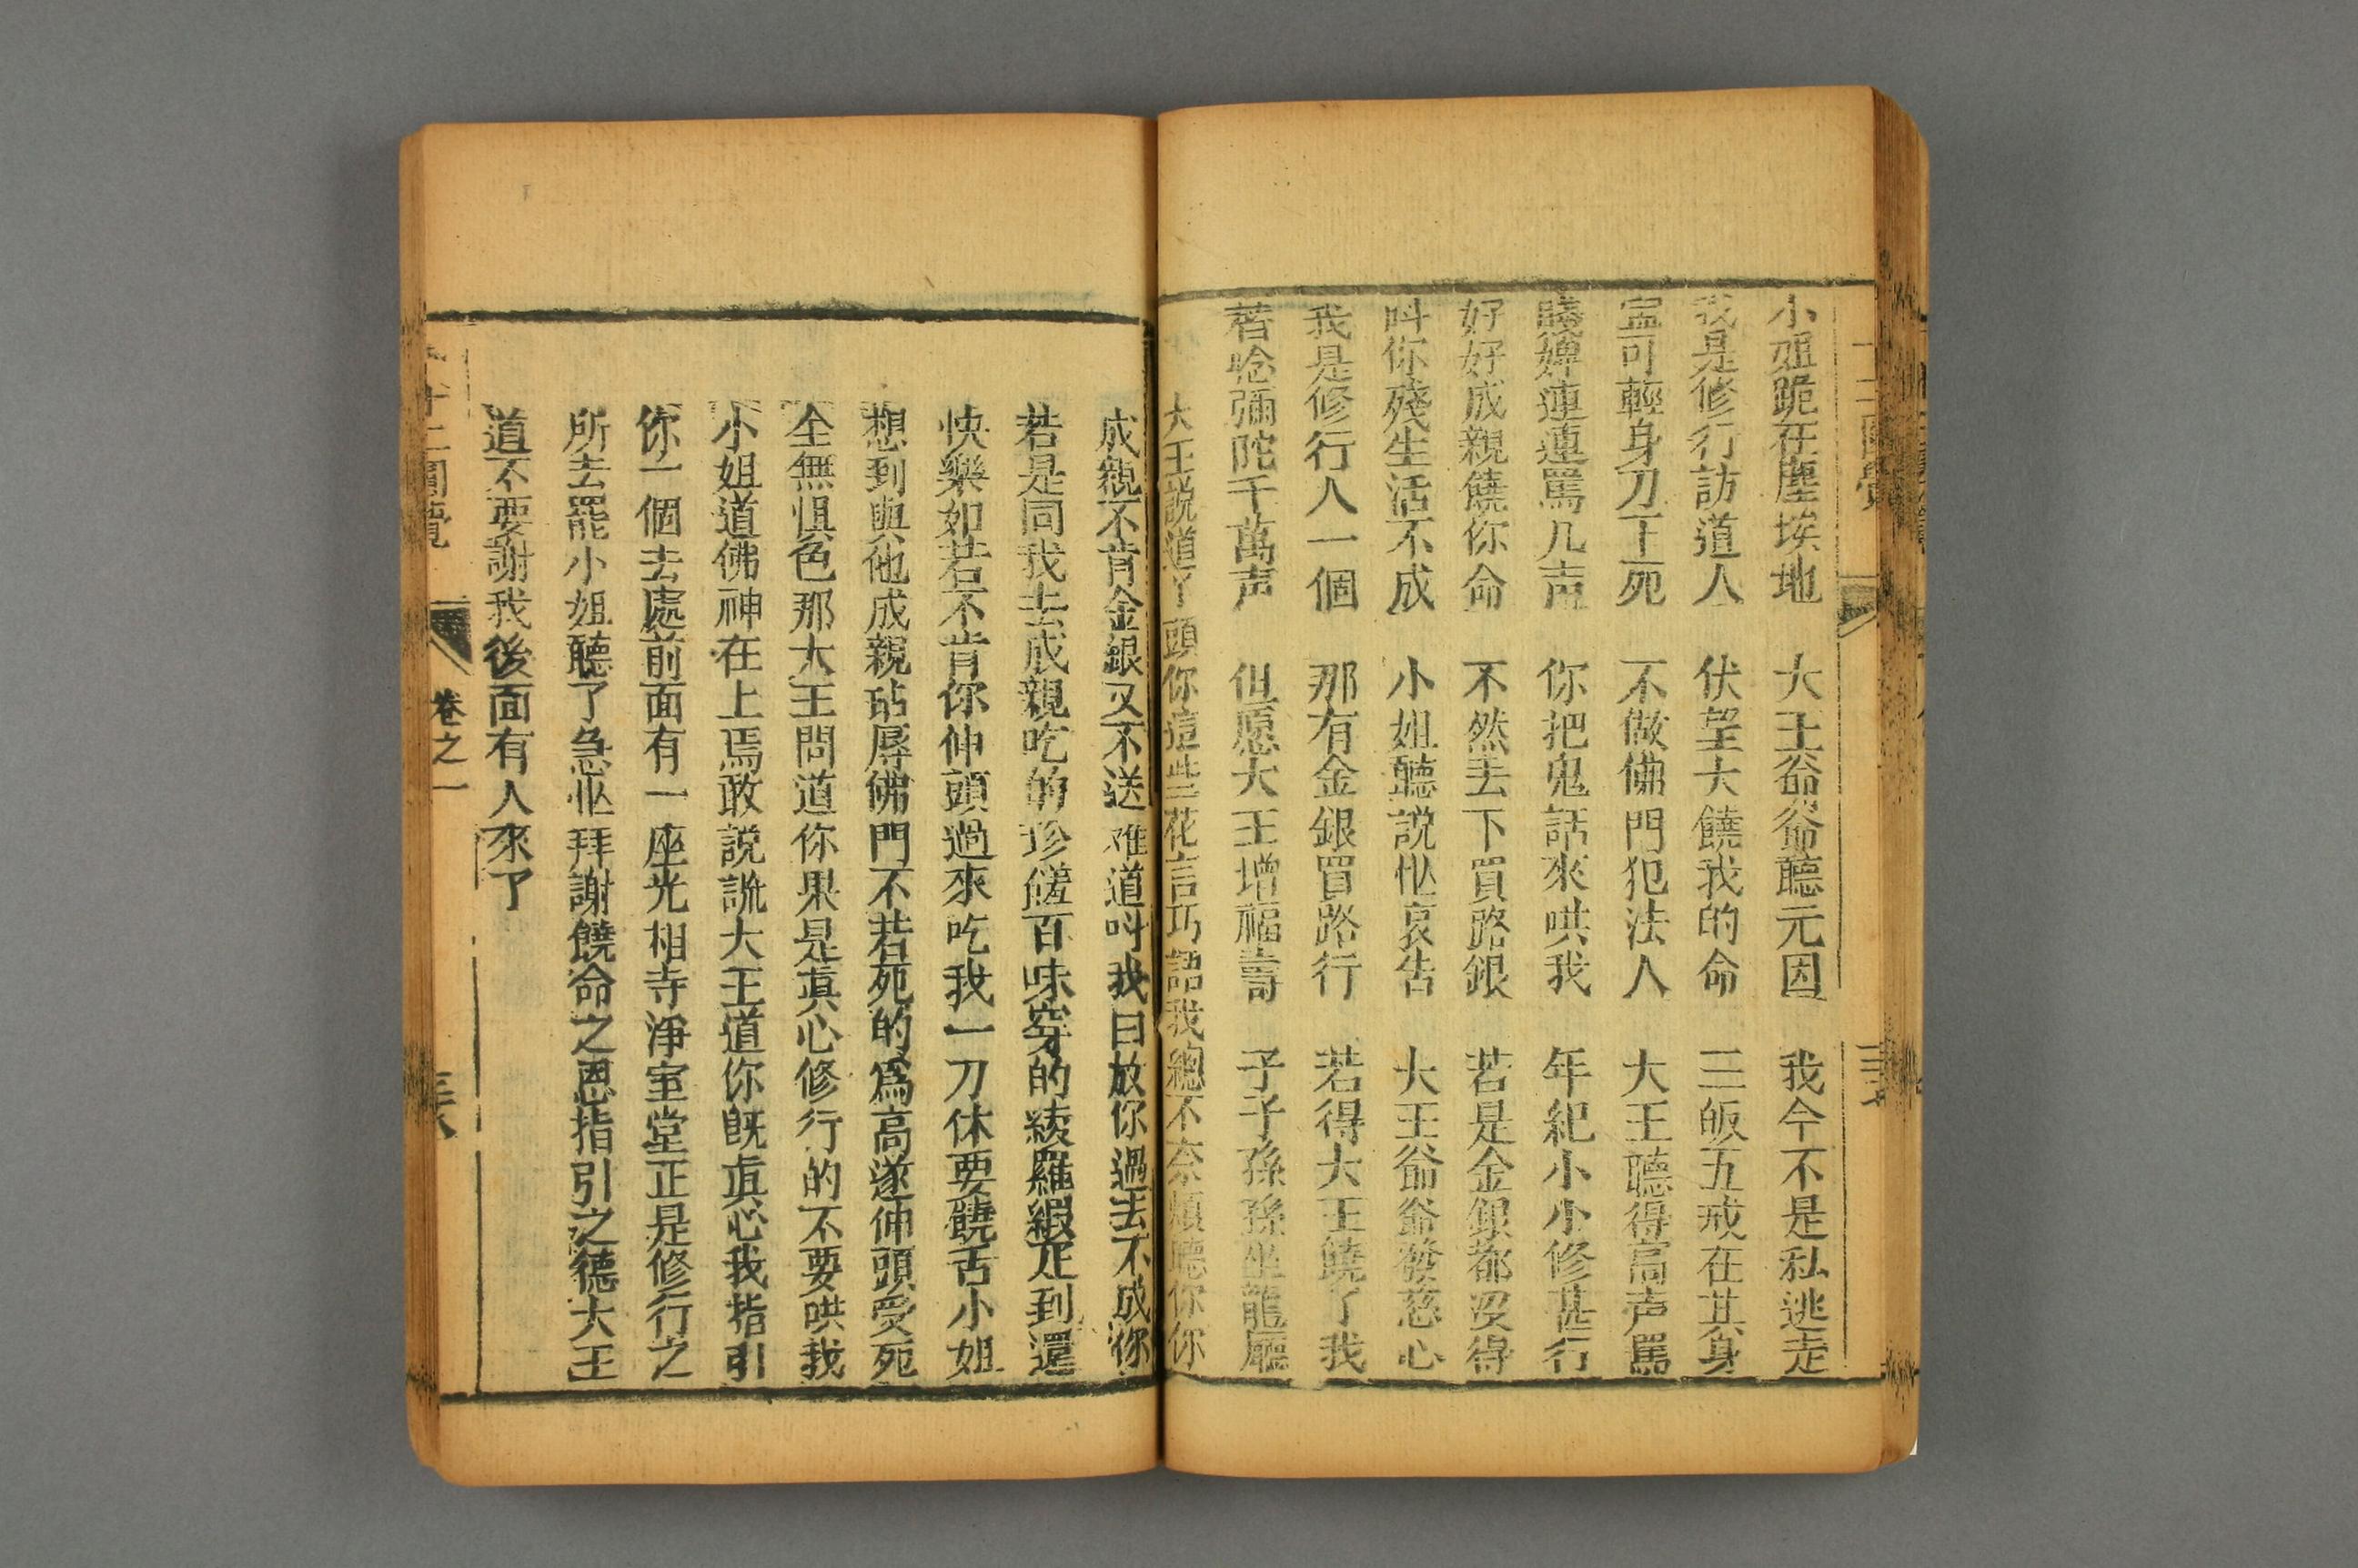 十二圓覺
小姐跪在塵埃地 大王爺爺聽元因 我今不是私逃走
我是修行訪道人 伏望大饒我的命 三皈五戒在其身
寍可輕身刀下死 不做佛門犯法人 大王聽得高声罵
賤婢連連罵几声 你把鬼話來哄我 年紀小小修甚行
好好成親饒你命 不然丟下買路銀 若是金銀都沒得
呌你殘生活不成 小姐聽說忙哀告 大王爺爺發慈心
我是修行人一個 那有金銀買路行 若得大王饒了我
若唸彌陀千萬声 但愿大王增福壽 子子孫孫坐龍廳
大王說道丫頭你這些花言巧語我總不奈煩聽你你
成親不肯金銀又不送难道呌我曰放你過去不成你
若是同我去成親吃的珍饈百味穿的綾羅緞疋到還
快樂如若不肯你伸頭過來吃我一刀休要饒舌小姐
想到與他成親玷辱佛門不若死的爲高遂伸頭受死
全無惧色那大王問道你果是眞心修行的不要哄我
小姐道佛神在上焉敢說謊大王道你旣眞心我指引
你一個去處前面有一座光相寺淨室堂正是修行之
所去罷小姐聽了急忙拜謝饒命之恩指引之德大王
道不要謝我後面有人來了
十二圓覺 卷之一